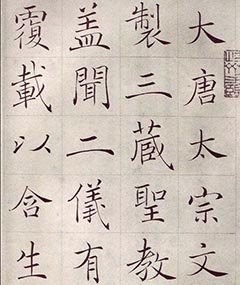 大唐太宗文
製三藏聖教
盖聞二儀有
覆載以含生